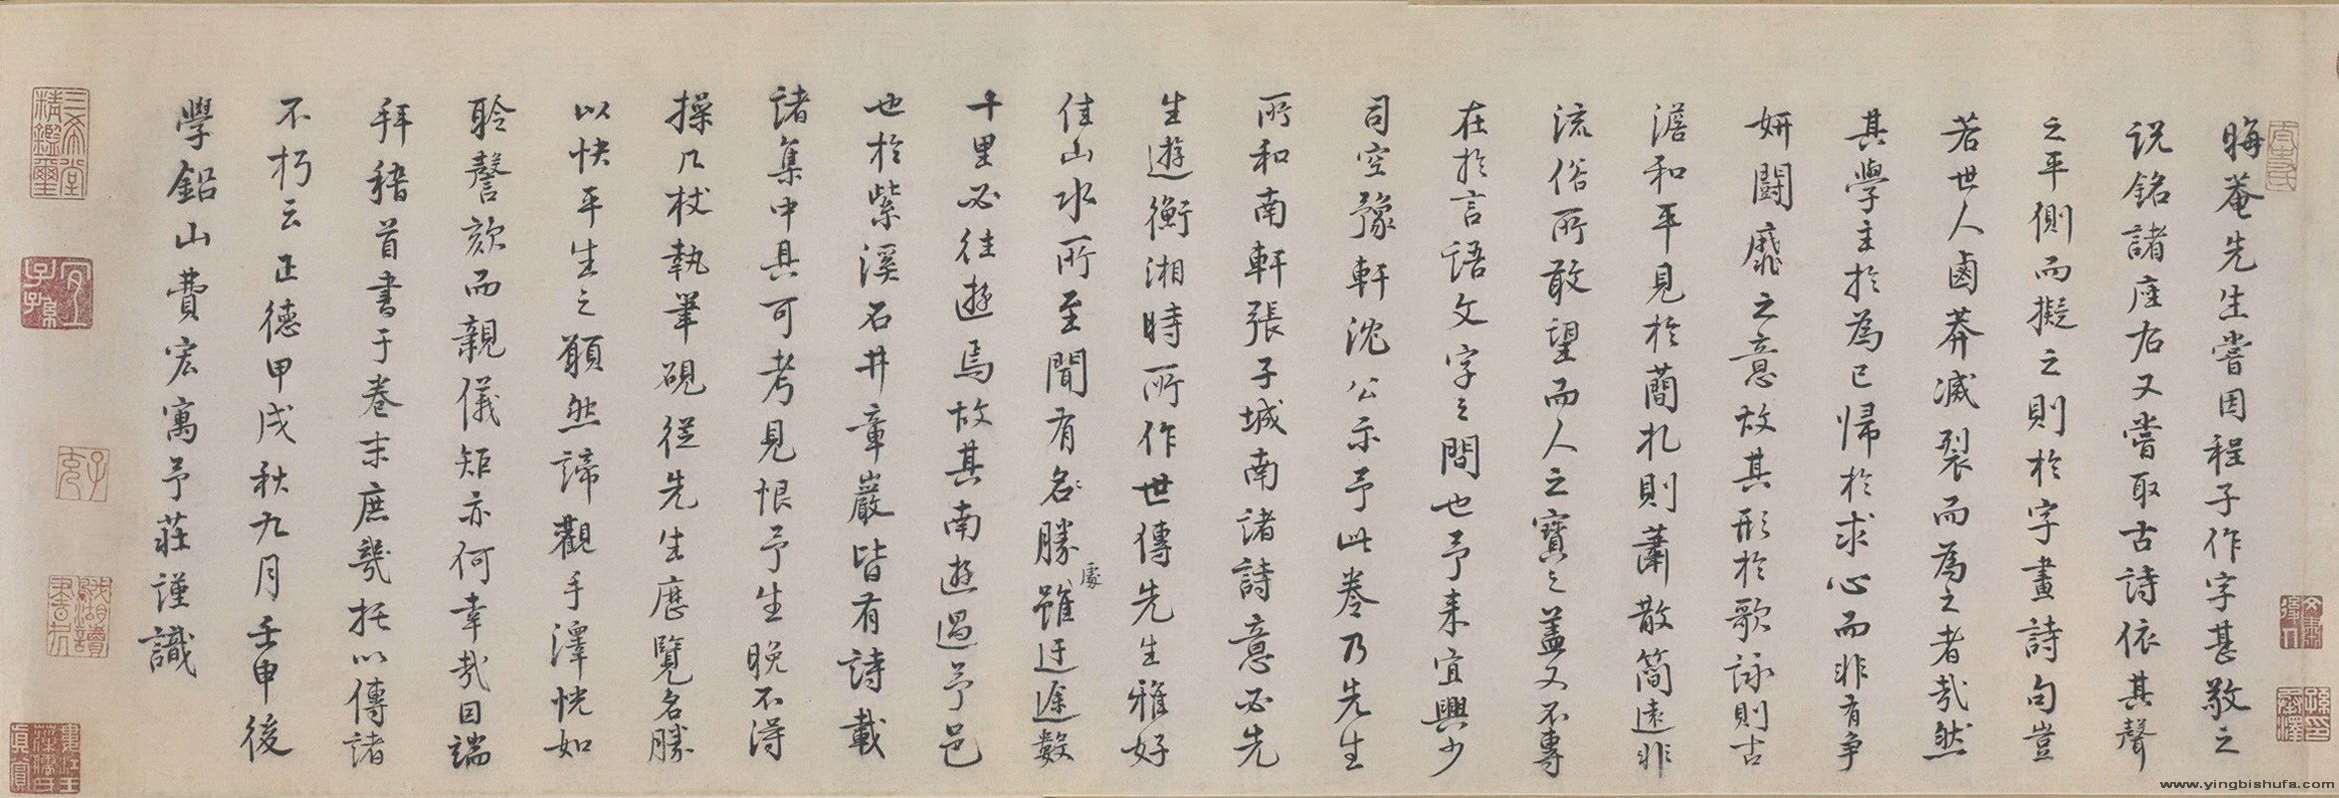 晦菴先生嘗因程子作字甚敬之
說銘諸座右又嘗取古詩依其聲
之平側而擬之則於字畫詩句豈
若世人鹵莽滅裂而為之者哉然
其學主於為己歸於求心而非有爭
妍鬪靡之意故其形於歌詠則古
澹和平見於蕑札則蕭散簡遠非
流俗所敢望而人之寶之蓋又不專
在於言語文字之間也予来宜興少
司空豫軒沈公示予此卷乃先生
所和南軒張子城南諸詩意必先
生遊衡湘時所作世傳先生雅好
佳山水所至聞有名勝處雖迂途數
十里必往遊焉故其南遊過予邑
也於紫溪石井章巖皆有詩載
諸集中具可考見恨予生晚不得
操几杖執筆硯從先生歷覽名勝
以快平生之願然諦觀手澤恍如
聆謦欬而親儀矩亦何幸哉因端
拜稽首書于卷末庶幾托以傳諸
不朽云正德甲戌秋九月壬申後
學鉛山費宏寓予莊謹識
三希堂精鑑璽
宜子孫
www.yingbishufa.com